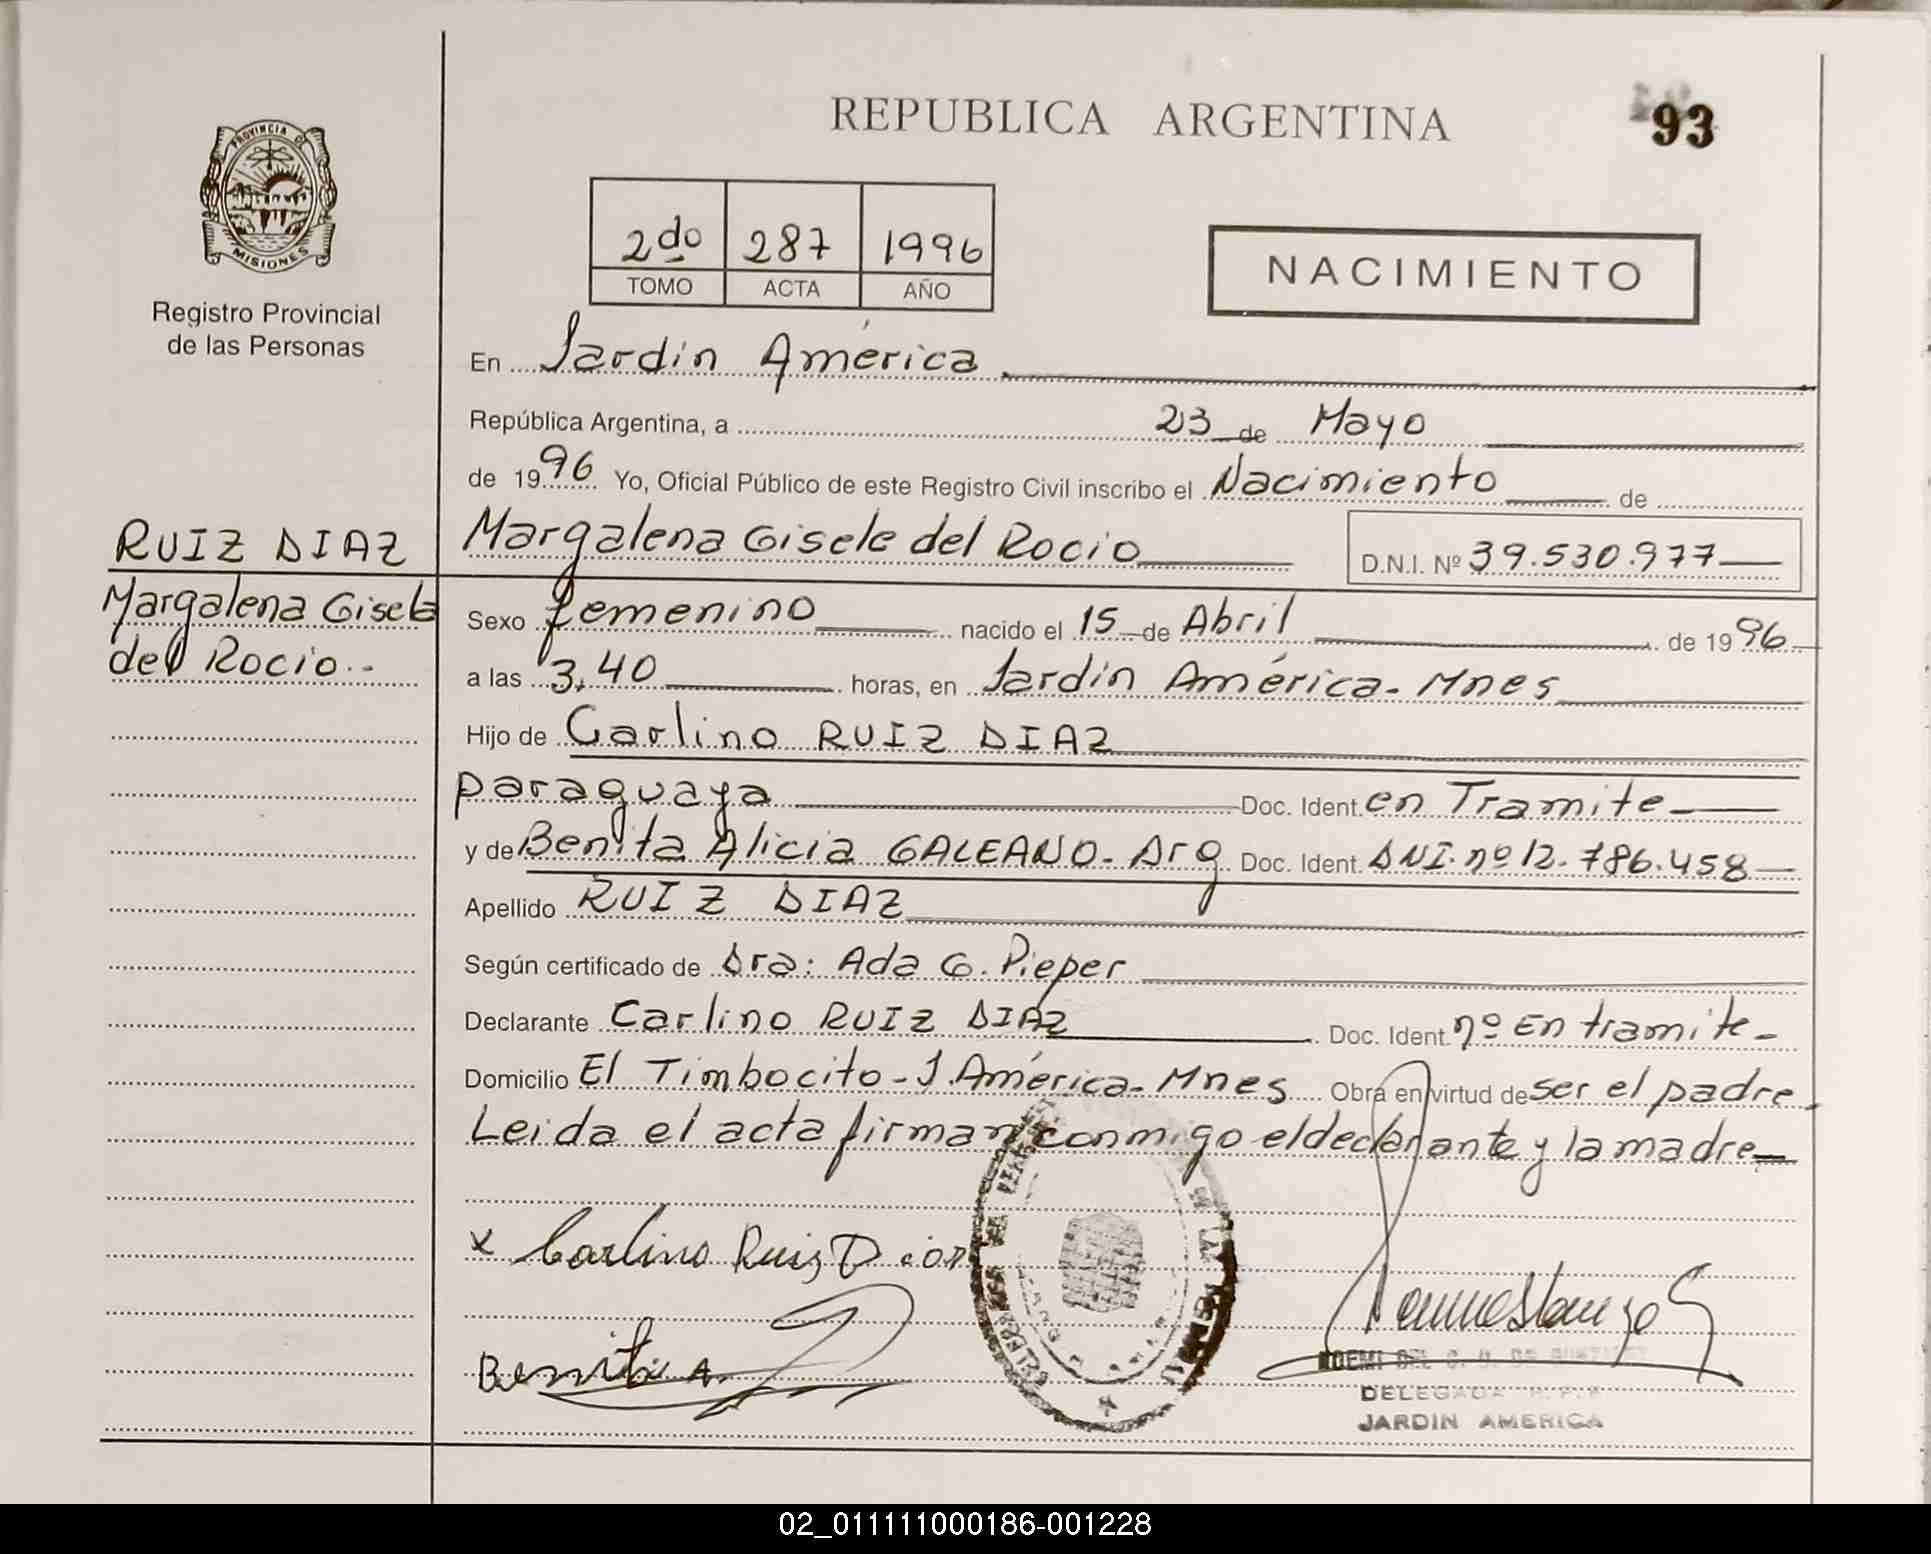 REPUBLICA ARGENTINA
93
PROVINCIA DE
MISIONES
Registro Provincial
de las Personas
2do 287 1996
TOMO ACTA AÑO
NACIMIENTO
En Jardin América
República Argentina, a 23 de Mayo
de 1996 Yo, Oficial Público de este Registro Civil inscribo el Nacimiento de
RUIZ DIAZ
Margalena Gisela
del Rocio
Margalena Gisele del Rocio D.N.I. Nº 39.530.977
Sexo femenino nacido el 15 de Abril de 1996
a las 3,40 horas, en Jardin América - Mnes
Hijo de Carlino RUIZ DIAZ
paraguaya Doc. Ident. en Tramite
y de Benita Alicia GALEANO - Arg Doc. Ident. DNI. nº 12.786.458
Apellido RUIZ DIAZ
Según certificado de Dra: Ada G. Pieper
Declarante Carlino RUIZ DIAZ Doc. Ident. nº En tramite
Domicilio El Timbocito - J. América - Mnes Obra en virtud de ser el padre.
Leida el acta firman conmigo el declarante y la madre
x Carlino Ruiz Diaz
Benita A.
NOEMI DEL C.
DELEGADA
JARDIN AMERICA
02_011111000186-001228